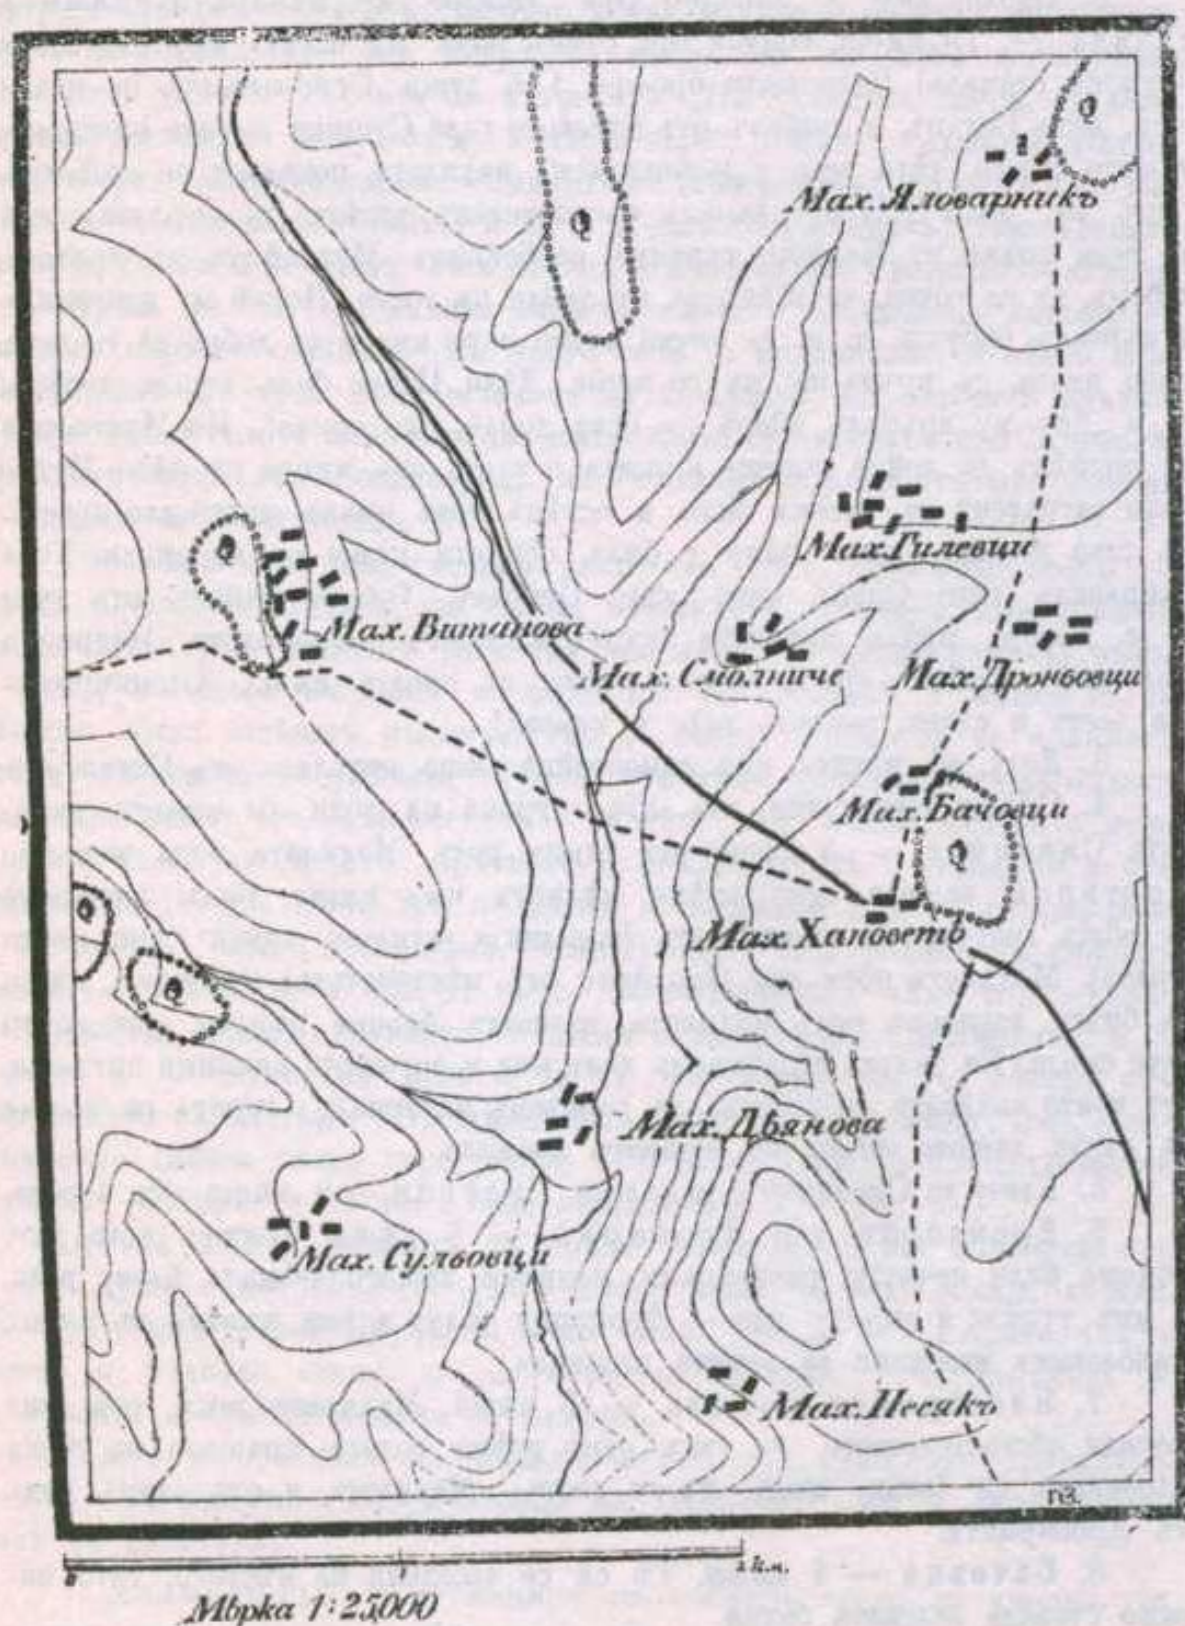 Мах. Яловарникъ
Мах. Гилевци
Мах. Витанова
Мах. Смолниче
Мах. Дроньовци
Мах. Бачовци
Мах. Хановетѣ
Мах. Дѣянова
Мах. Сульовци
Мах. Песякъ
0 1 2 км.
Мѣрка 1:25,000